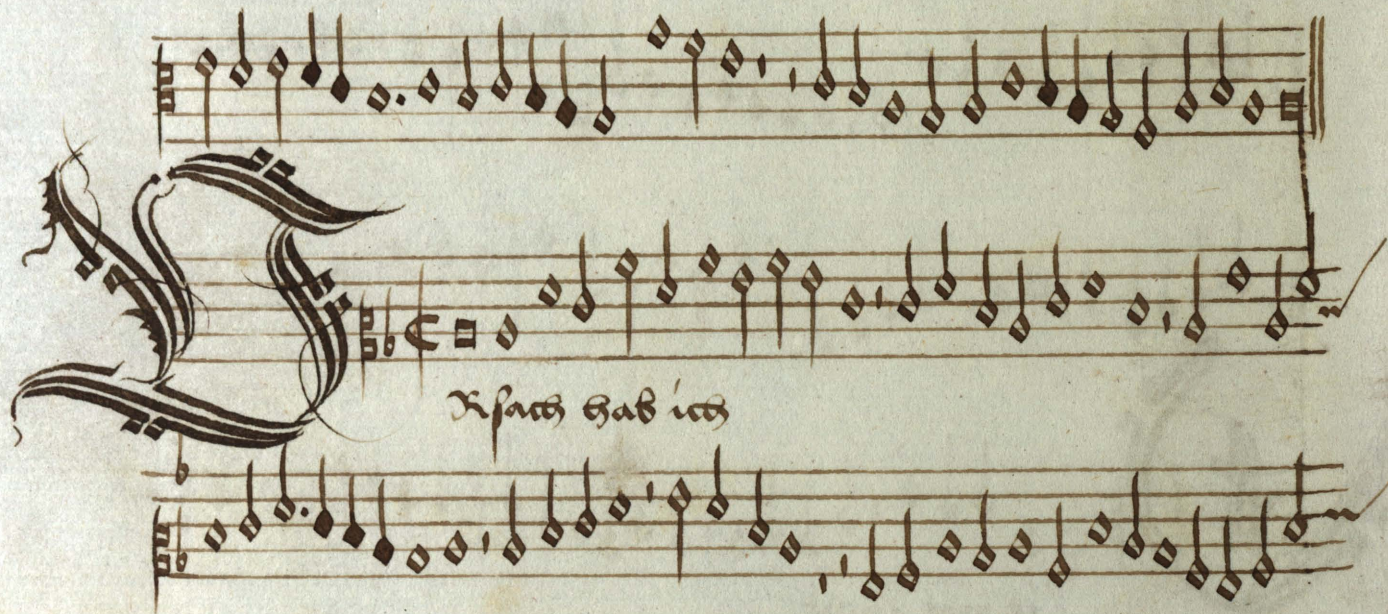 VRsach hab ich